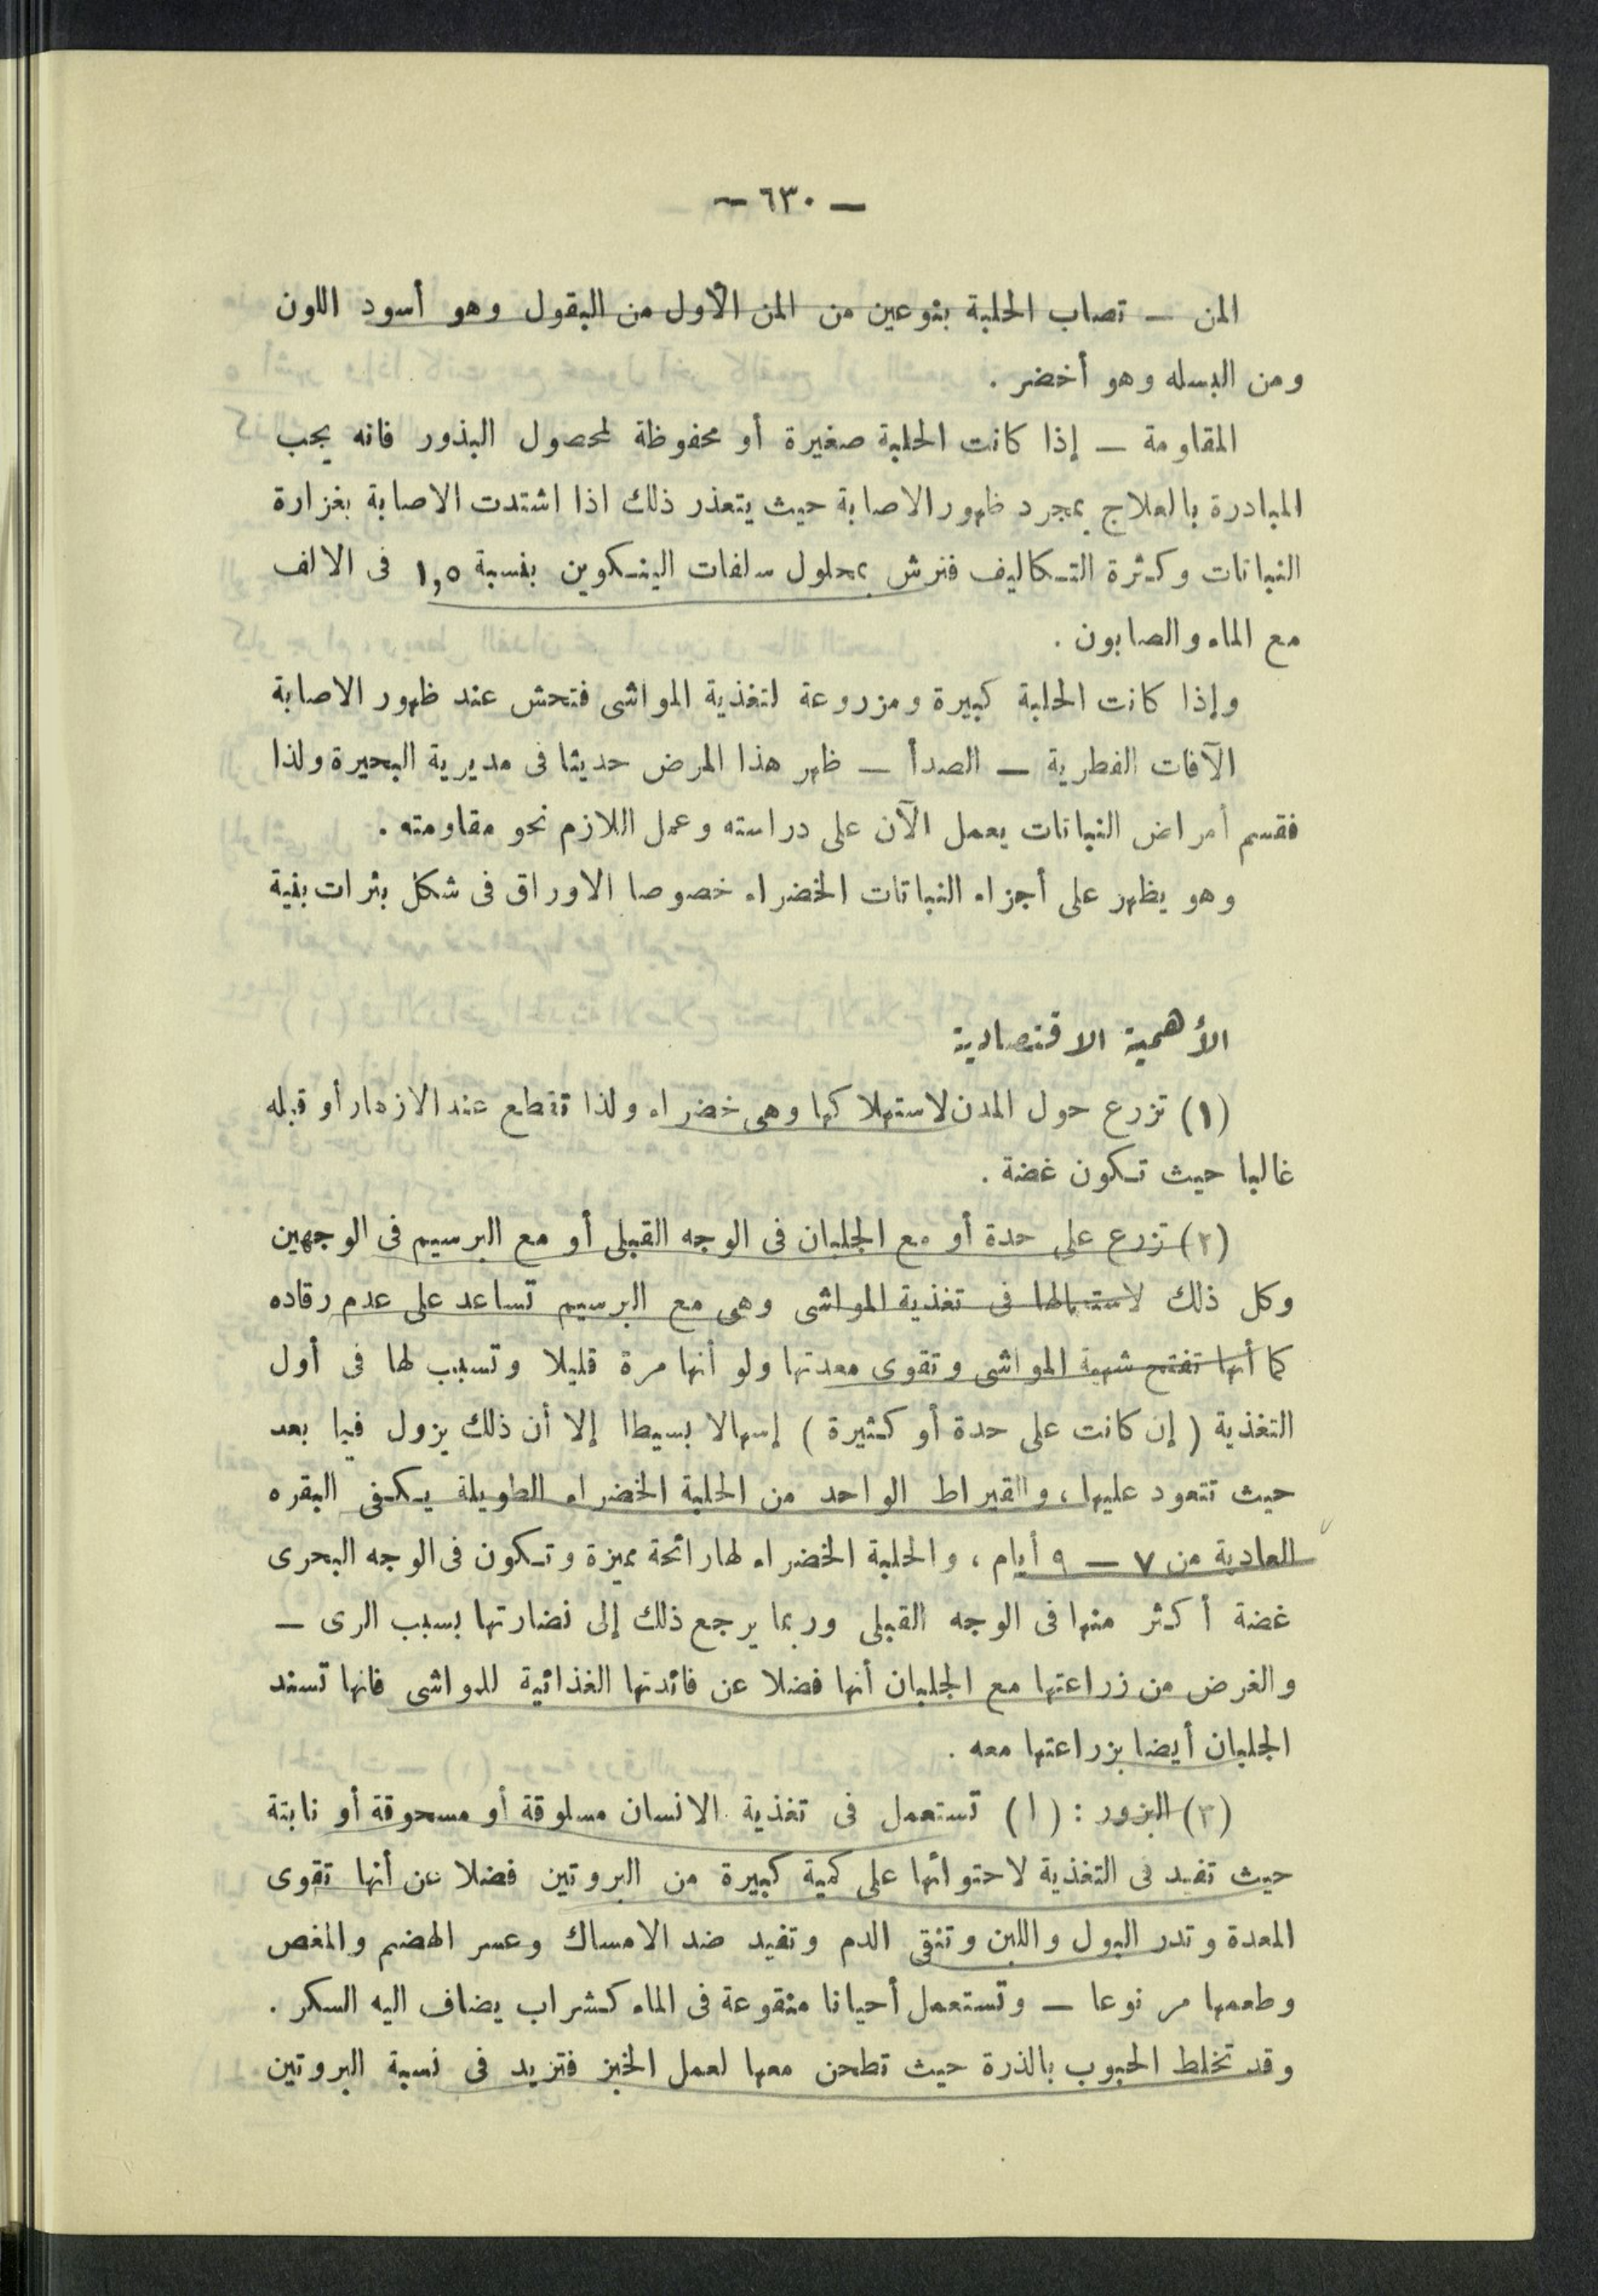 — ٦٣٠ —
المن — تصاب الحلبة بنوعين من المن الأول من البقول وهو أسود اللون
ومن البسله وهو أخضر .
المقاومة — إذا كانت الحلبة صغيرة أو محفوظة لمحصول البذور فانه يجب
المبادرة بالعلاج بمجرد ظهور الاصابة حيث يتعذر ذلك اذا اشتدت الاصابة بغزارة
النباتات وكثرة التكاليف فترش بمحلول سلفات النيكوين بنسبة ١,٥ فى الالف
مع الماء والصابون .
وإذا كانت الحلبة كبيرة ومزروعة لتغذية المواشى فتحش عند ظهور الاصابة
الآفات الفطرية — الصدأ — ظهر هذا المرض حديثا فى مديرية البحيرة ولذا
فقسم أمراض النباتات يعمل الآن على دراسته وعمل اللازم نحو مقاومته .
وهو يظهر على أجزاء النباتات الخضراء خصوصا الاوراق فى شكل بثرات بنية
الأهمية الاقتصادية
(١) تزرع حول المدن لاستهلاكها وهى خضراء ولذا تقطع عند الازهار أو قبله
غالبا حيث تكون غضة .
(٢) تزرع على حدة أو مع الجلبان فى الوجه القبلى أو مع البرسيم فى الوجهين
وكل ذلك لاستعمالها فى تغذية المواشى وهى مع البرسيم تساعد على عدم رقاده
كما أنها تفتح شهية المواشى وتقوى معدتها ولو أنها مرة قليلا وتسبب لها فى أول
التغذية ( إن كانت على حدة أو كثيرة ) إسهالا بسيطا إلا أن ذلك يزول فيما بعد
حيث تتعود عليها ، والقيراط الواحد من الحلبة الخضراء الطويلة يكفى البقره
العادية من ٧ — ٩ أيام ، والحلبة الخضراء لها رائحة مميزة وتكون فى الوجه البحرى
غضة أكثر منها فى الوجه القبلى وربما يرجع ذلك إلى نضارتها بسبب الرى —
والغرض من زراعتها مع الجلبان أنها فضلا عن فائدتها الغذائية للمواشى فانها تسند
الجلبان أيضا بزراعتها معه .
(٣) البزور : (١) تستعمل فى تغذية الانسان مسلوقة أو مسحوقة أو نابتة
حيث تفيد فى التغذية لاحتوائها على كمية كبيرة من البروتين فضلا عن أنها تقوى
المعدة وتدر البول واللبن وتنقى الدم وتفيد ضد الامساك وعسر الهضم والمغص
وطعمها مر نوعا — وتستعمل أحيانا منقوعة فى الماء كشراب يضاف اليه السكر .
وقد تخلط الحبوب بالذرة حيث تطحن معها لعمل الخبز فتزيد فى نسبة البروتين